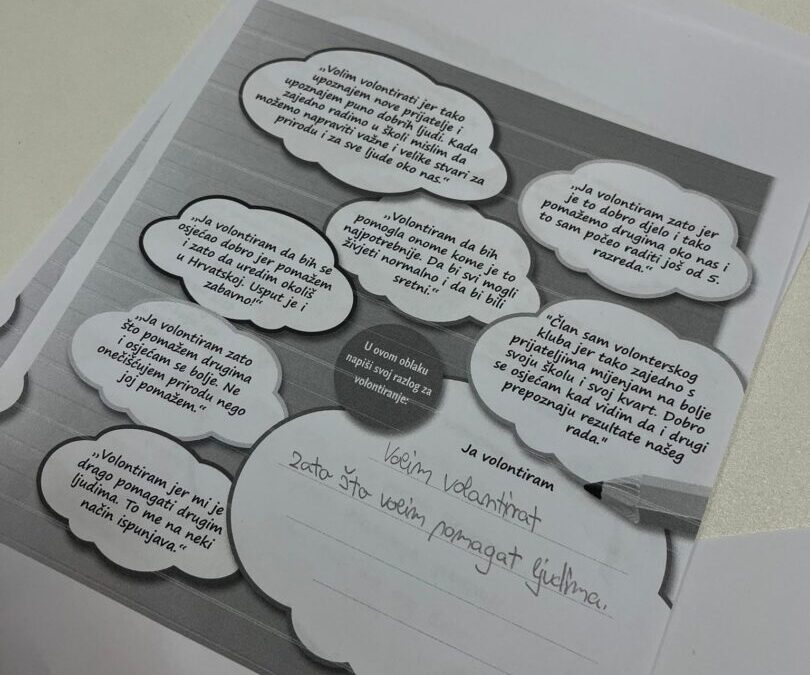 „Volim volontirati jer tako
upoznajem nove prijatelje i
upoznajem puno dobrih ljudi. Kada
zajedno radimo u školi mislim da
možemo napraviti važne i velike stvari za
prirodu i za sve ljude oko nas.“
„Ja volontiram zato jer
je to dobro djelo i tako
pomažemo drugima oko nas i
to sam počeo raditi još od 5.
razreda.“
„Ja volontiram da bih se
osjećao dobro jer pomažem
i zato da uredim okoliš
u Hrvatskoj. Usput je i
zabavno!“
„Volontiram da bih
pomogla onome kome je to
najpotrebnije. Da bi svi mogli
živjeti normalno i da bi bili
sretni.“
"Član sam volonterskog
kluba jer tako zajedno s
prijateljima mijenjam na bolje
svoju školu i svoj kvart. Dobro
se osjećam kad vidim da i drugi
prepoznaju rezultate našeg
rada."
„Ja volontiram zato
što pomažem drugima
i osjećam se bolje. Ne
onečišćujem prirodu nego
joj pomažem.“
U ovom oblaku
napiši svoj razlog za
volontiranje:
„Volontiram jer mi je
drago pomagati drugim
ljudima. To me na neki
način ispunjava.“
Ja volontiram
Volim volantirat
zato što volim pomagat ljudima.